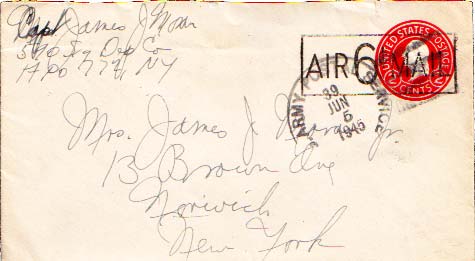 Capt James J
Co
APO 772, NY
UNITED STATES POSTAGE
2 CENTS 2
AIR 6¢ MAIL
U.S. ARMY POSTAL SERVICE
39
JUN
5
1945
Mrs. James J. Jr.
13 Brown Ave
Norwich
New York